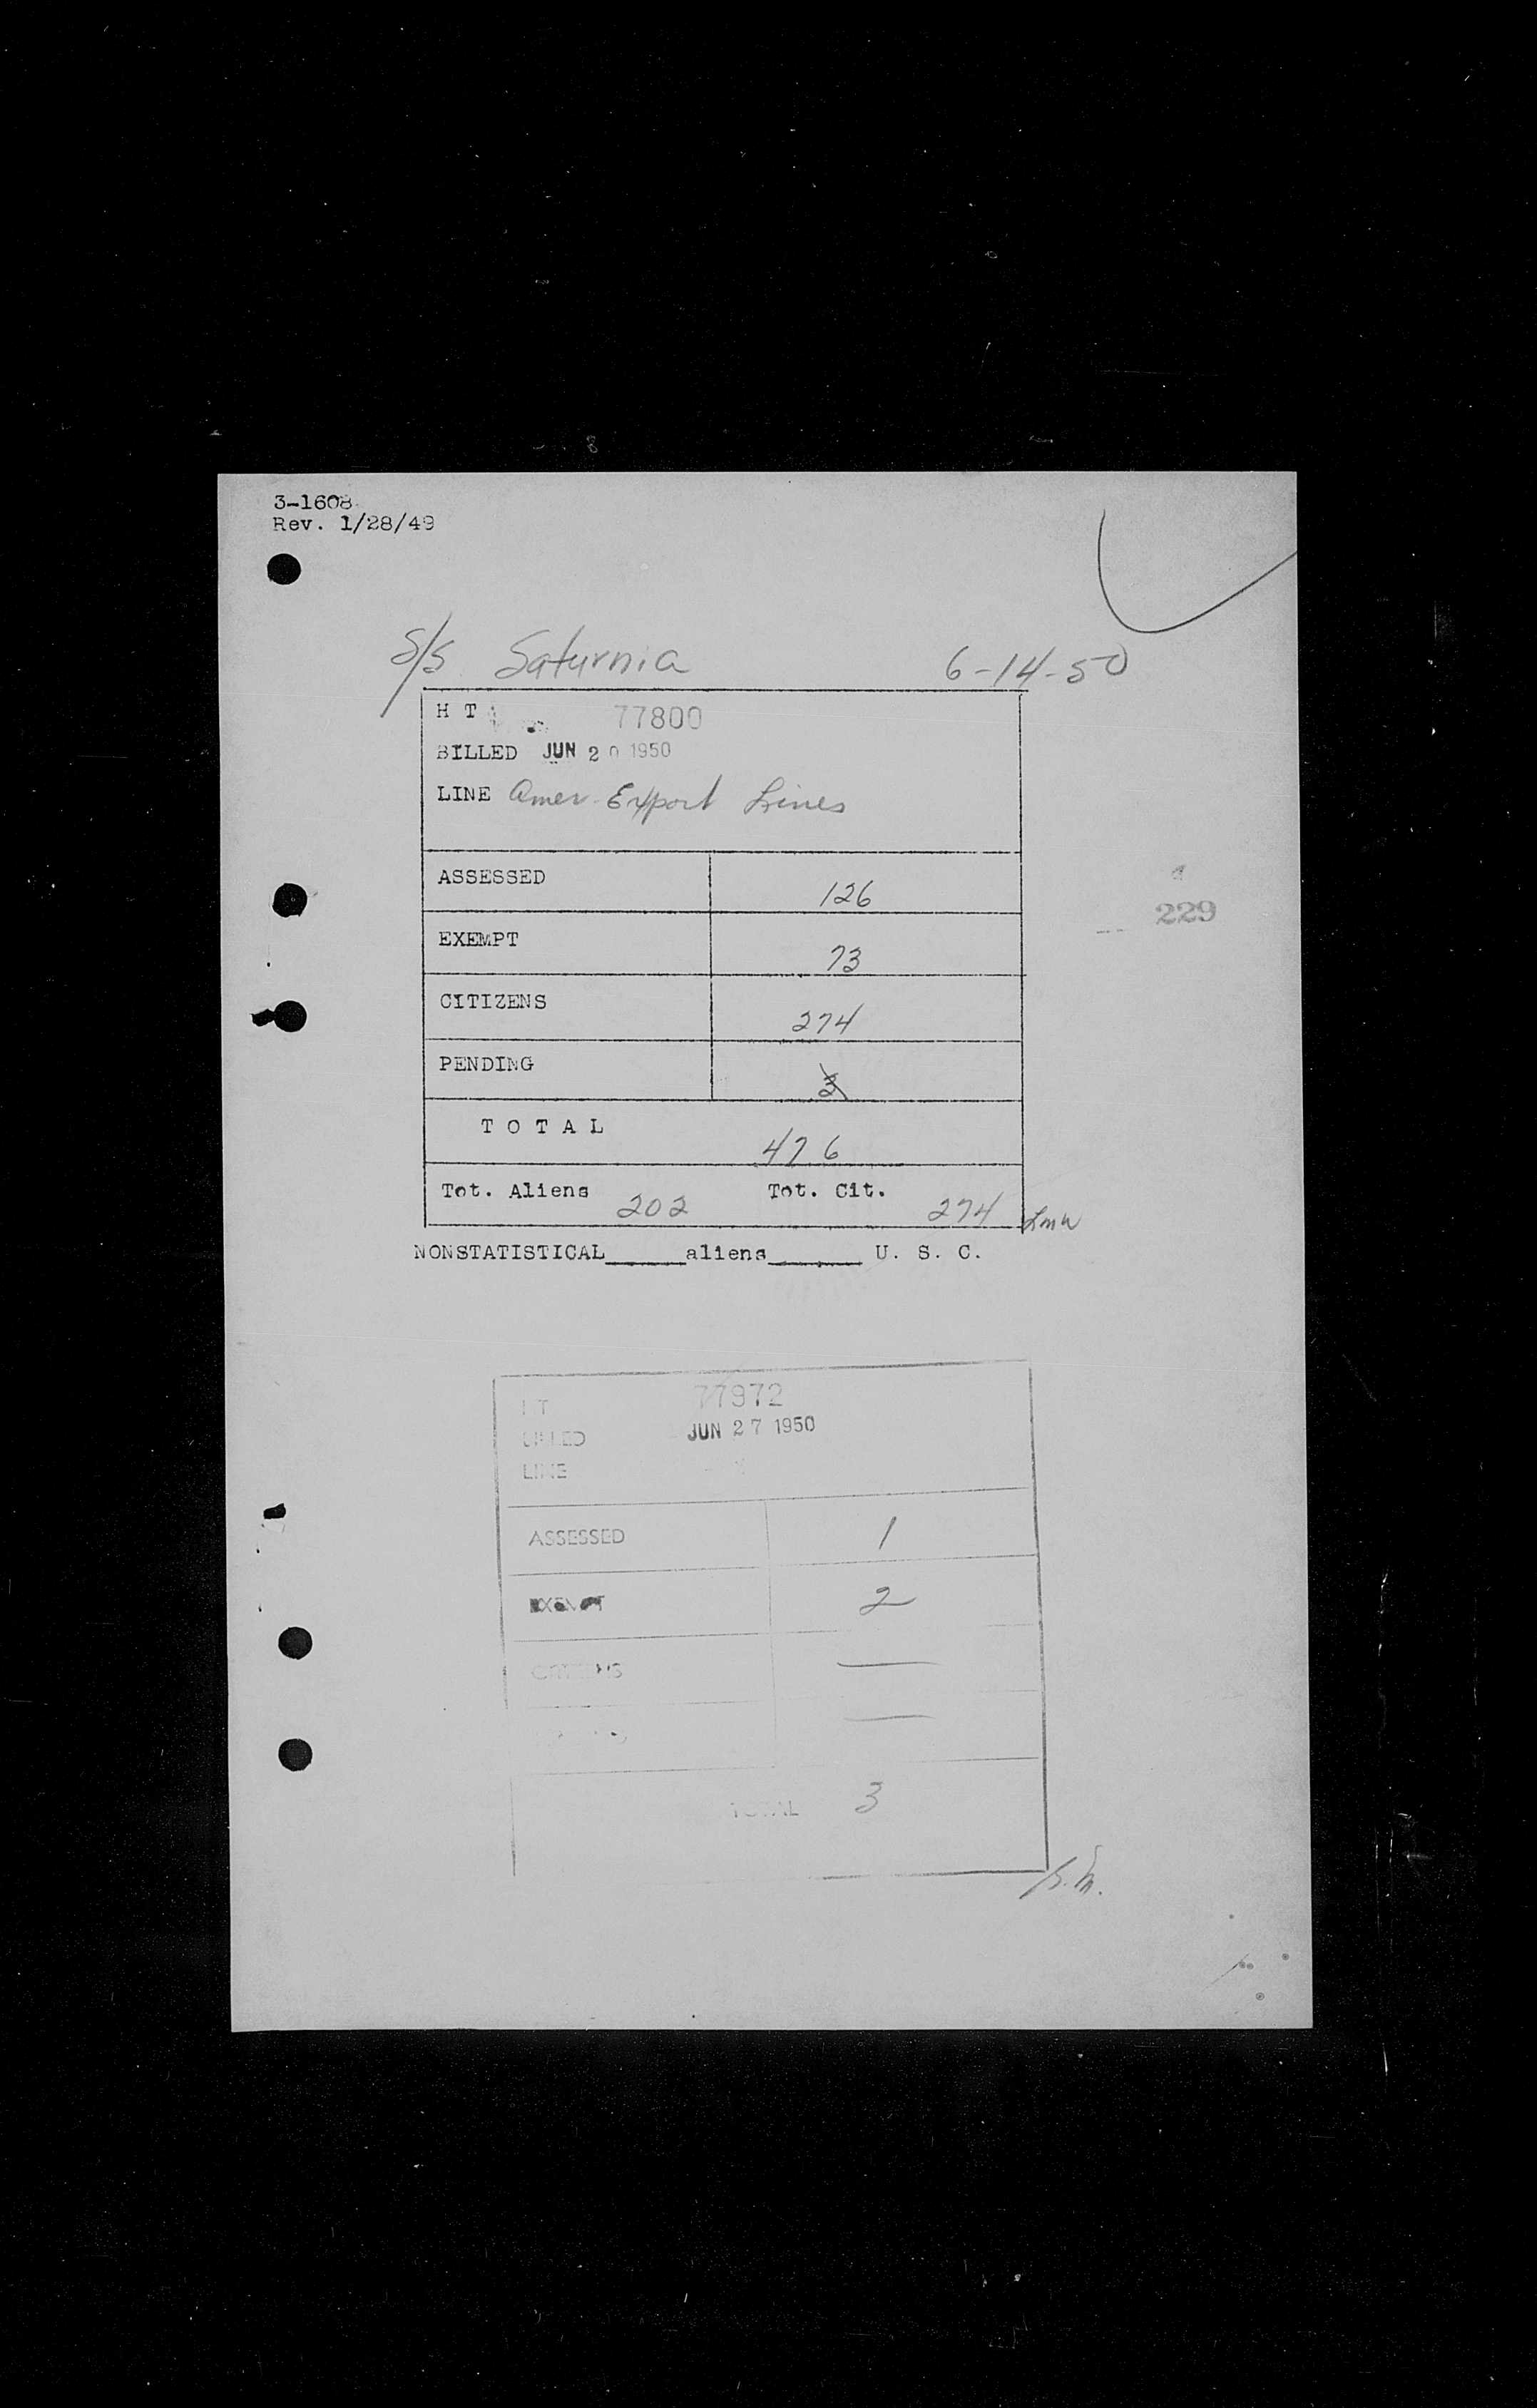 3-1608
Rev. 1/28/49
S/S Saturnia 6-14-50
H T 77800
BILLED JUN 20 1950
LINE Amer. Export Lines
ASSESSED 126
229
EXEMPT 73
CITIZENS 274
PENDING 3
T O T A L 476
Tot. Aliens 202 Tot. Cit. 274 LMW
NONSTATISTICAL_____aliens______ U. S. C.
H T 77972
BILLED JUN 27 1950
LINE
ASSESSED 1
EXEMPT 2
CITIZENS —
—
TOTAL 3